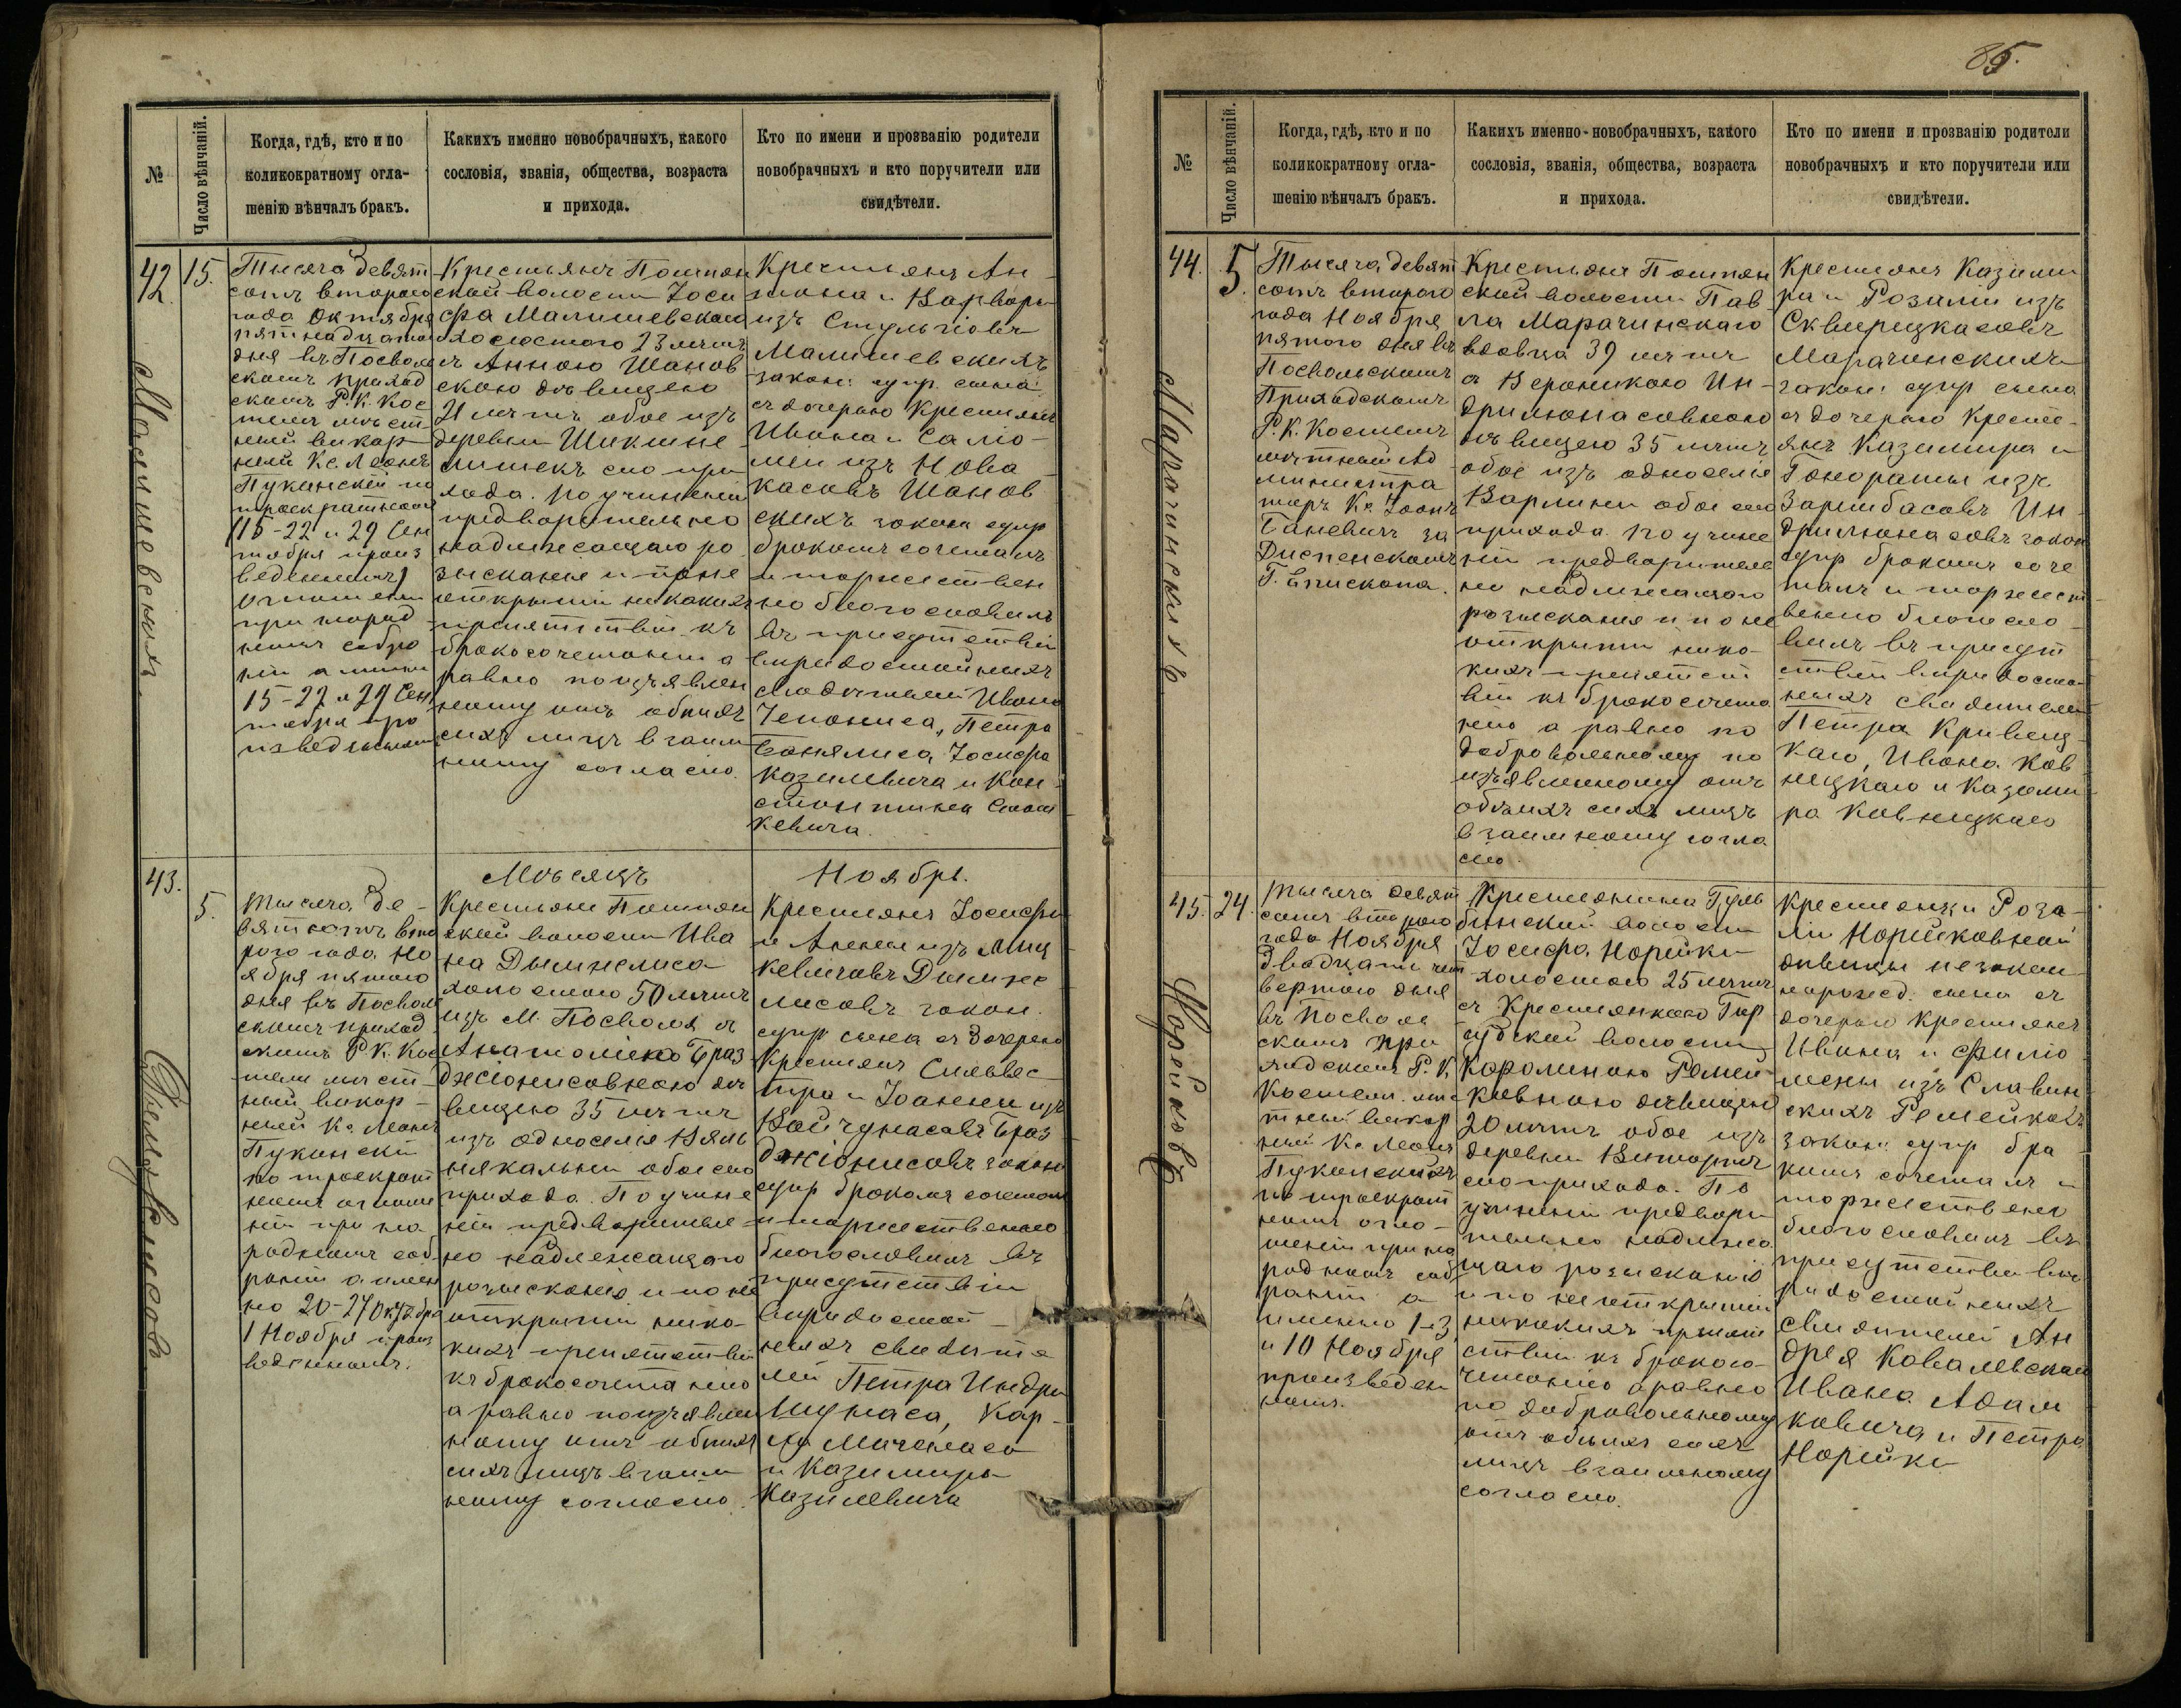 85.
№
Число вѣнчаній.
Когда, гдѣ, кто и по
коликократному огла-
шенію вѣнчалъ бракъ.
Какихъ именно новобрачныхъ, какого
сословія, званія, общества, возраста
и прихода.
Кто по имени и прозванію родители
новобрачныхъ и кто поручители или
свидѣтели.
42.
15.
Малишевскихъ
Тысяча девят
сотъ второго
года Октября
пятнадцатаго
дня въ Посволь
скомъ приход
скомъ Р. К. Кос
телѣ мѣст
ный викар
ный Кс. Леонъ
Пуканскій по
троекратномъ
(15-22 и 29 Сен
тября произ
веденномъ)
оглашеніи
при народ
номъ собра
ніи а именно
15-22 и 29 Сен
тября про
изведенномъ
Крестьянъ Помпян
ской волости Іоси
фа Малишевскаго
холостого 23 лѣтъ
съ Анною Шанов
скою дѣвицею
21 лѣтъ обое изъ
деревни
сего при
хода. По учиненіи
предварительно
надлежащаго ро
зысканія и по не
открытіи никакихъ
препятствій къ
бракосочетанію а
равно по изъявлен
ному отъ обоихъ
сихъ лицъ взаим
ному согласію.
Крестьянъ Ан
тона и Варвары
изъ Стульгіовъ
Малишевскихъ
закон. супр. сына
съ дочерью Крестьянъ
Ивана и Саліо-
меи изъ Нова
касовъ Шанов
скихъ закон. супр
бракомъ сочеталъ
и торжествен
но благословилъ
въ присутствіи
вѣридостойныхъ
свидѣтелей Ивана
Чепониса, Петра
Іосифа
Казилевича и Кон
стантина Стан
кевича.
43.
5.
Мѣсяцъ Ноябрь.
Тысяча де-
вятьсотъ вто
рого года Но
ября пятого
дня въ Посволь
скомъ приход
скомъ Р. К. Кос
телѣ мѣст-
ный викар-
ный Кс. Леонъ
Пуканскій
по троекрат
номъ оглаше
ніи при на
родномъ соб
раніи а имен
но 20-27 Октября
1 Ноября произ
веденномъ.
Крестьянъ Помпян
ской волости Ива
на Дымнелиса
холостого 50 лѣтъ
изъ М. Посволя съ
Анатоліею Браз
джіонисовною дѣ
вицею 35 лѣтъ
изъ односелія
обое сего
прихода. По учине
ніи предваритель-
но надлежащаго
розысканія и по не
открытіи ника-
кихъ препятствій
къ бракосочетанію
а равно по изъявлен
ному отъ обоихъ
сихъ лицъ взаим
ному согласію.
Крестьянъ Іосифа
и Анны изъ Миц
кевичовъ Дымне
лисовъ закон.
супр сына съ дочерью
Крестьянъ Сильвес
тра и Іоанны изъ
Войчунасовъ Браз
джіонисовъ закон
супр бракомъ сочеталъ
и торжественно
благословилъ въ
присутствіи
вѣридостой-
ныхъ свидѣте
лей Петра Индри
люнаса, Кар-
ла
и Казимира
Казилевича
№
Число вѣнчаній.
Когда, гдѣ, кто и по
коликократному огла-
шенію вѣнчалъ бракъ.
Какихъ именно-новобрачныхъ, какого
сословія, званія, общества, возраста
и прихода.
Кто по имени и прозванію родители
новобрачныхъ и кто поручители или
свидѣтели.
44.
5.
Марачинскихъ
Тысяча девят
сотъ второго
года Ноября
пятого дня въ
Посвольскомъ
Приходскомъ
Р. К. Костелѣ
мѣстный Ад
министра
торъ Кс. Іоанъ
Баневичъ за
Диспенскомъ
Г. Епископа.
Крестьянъ Помпян
ской волости Пав
ла Марачинскаго
вдовца 39 лѣтъ
съ Вероникою Ин-
дрилюнасовною
дѣвицею 35 лѣтъ
обое изъ односелія
обое сего
прихода. По учине
ніи предваритель
но надлежащаго
розысканія и по не
открытіи ника-
кихъ препятст
вій къ бракосочета
нію а равно по
добровольному по
изъявленному отъ
обоихъ сихъ лицъ
взаимному согла
сію.
Крестьянъ Казими
ра и Розаліи изъ
Сквирицкасовъ
Марачинскихъ
закон: супр сына
съ дочерью Крестьи-
янъ Казимира и
Гонораты изъ
Ин-
дрилюнасовъ закон
супр бракомъ соче
талъ и торжест
венно благосло-
вилъ въ присут
ствіи вѣридостой-
ныхъ свидѣтелей
Петра Кривиц-
каго, Ивана Ков
ницкаго и Казими
ра Ковницкаго
45.
24.
Норейковъ
Тысяча девят
сотъ второго
года Ноября
двадцать чет
вертого дня
въ Посволь
скомъ при
ходскомъ Р. К.
Костелѣ мѣс
тный викар
ный Кс. Леонъ
Пуканскій
по троекрат
номъ огла-
шеніи при на
родномъ соб
раніи а
именно 1-3
и 10 Ноября
произведен
номъ.
Крестьянина Гуль
бинской волости
Іосифа Норейки
холостого 25 лѣтъ
съ Крестьянкою Гир
судской волости
Каролиною Ремей
ковною дѣвицею
20 лѣтъ обое изъ
деревни
сего прихода. По
учиненіи предвари
тельно надлежа
щаго розысканія
и по неоткрытіи
никакихъ препят
ствій къ бракосо-
четанію а равно
по добровольному
отъ обоихъ сихъ
лицъ взаимному
согласію.
Крестьянки Роза-
ліи Норейковной
дѣвицы незакон
норожд. сына съ
дочерью Крестьянъ
Ивана и Филіо-
мены изъ Славин
скихъ Ремейковъ
закон: супр бра
комъ сочеталъ и
торжественно
благословилъ въ
присутствіи вѣ
ридостойныхъ
свидѣтелей Ан
дрея Ковалевскаго
Ивана Адам
ковича и Петра
Норейки